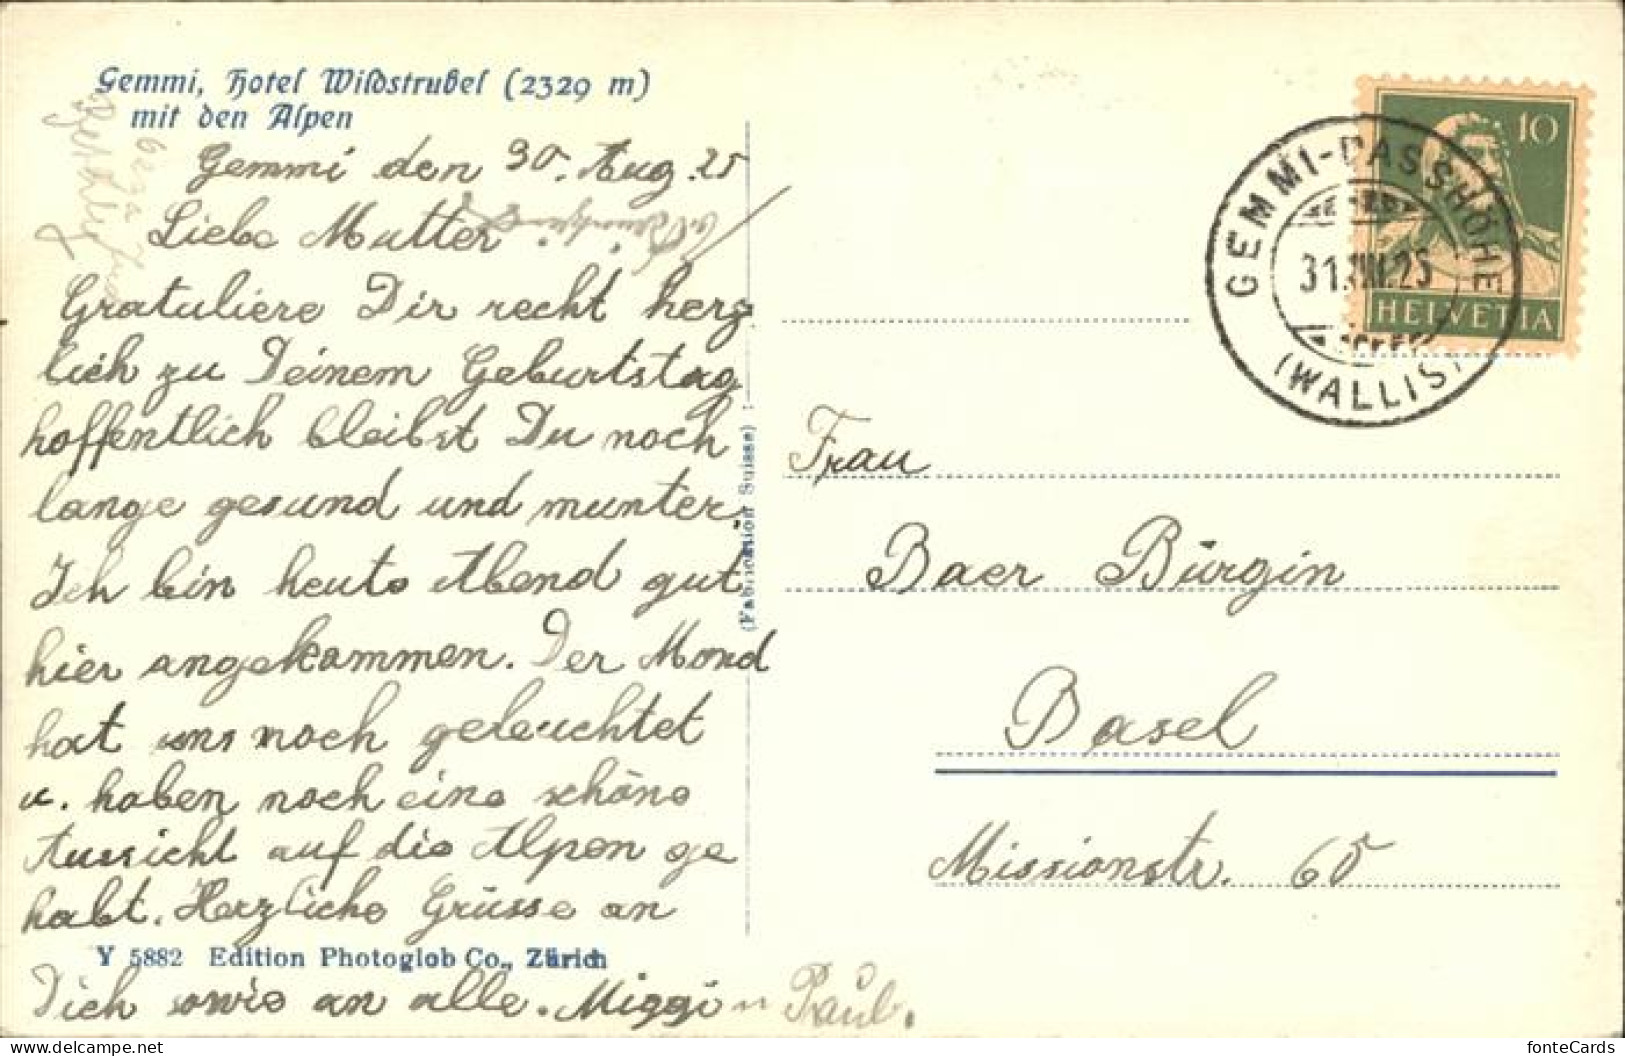 Gemmi, Hotel Wildstrubel (2329 m)
mit den Alpen
Gemmi den 30. Aug. 25
Liebe Mutter!
Gratuliere Dir recht herz
lich zu Deinem Geburtstag
hoffentlich bleibst Du noch
lange gesund und munter.
Ich bin heute Abend gut
hier angekommen. Der Mond
hat uns noch geleuchtet
u. haben noch eine schöne
Aussicht auf die Alpen ge
habt. Herzliche Grüsse an
Y 5882 Edition Photoglob Co., Zürich
Dich sowie an alle. Miggi u Paul.
(Fabrication Suisse)
GEMMI-PASSHÖHE
31.VIII.25
(WALLIS)
10
HELVETIA
Frau
Baer Bürgin
Basel
Missionstr. 65
fonteCards